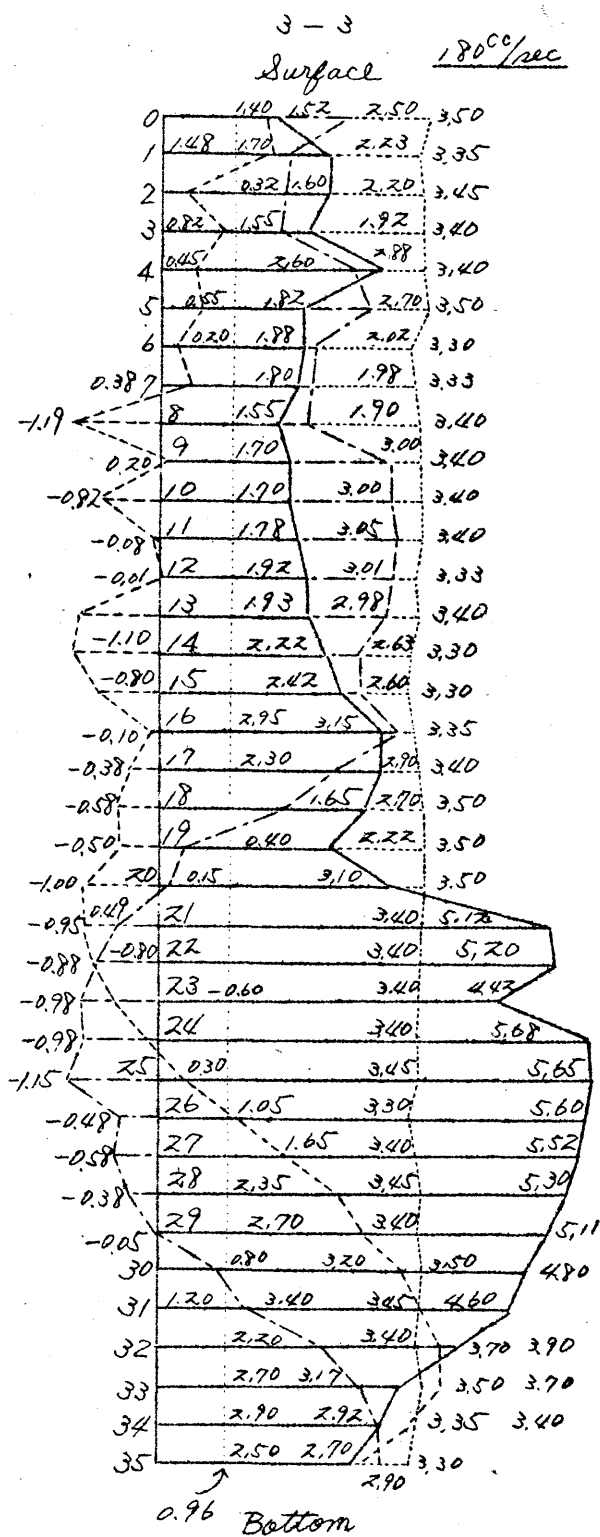 3-3
Surface 180cc/sec
0 1.40 1.52 2.50 3.50
1 1.48 1.70 2.23 3.35
2 0.32 1.60 2.20 3.45
3 0.82 1.55 1.92 3.40
4 0.45 2.60 2.88 3.40
5 0.55 1.82 2.70 3.50
6 0.20 1.88 2.02 3.30
0.38 7 1.80 1.98 3.33
-1.19 8 1.55 1.90 3.40
0.20 9 1.70 3.00 3.40
-0.82 10 1.70 3.00 3.40
-0.08 11 1.78 3.05 3.40
-0.01 12 1.92 3.01 3.33
13 1.93 2.98 3.40
-1.10 14 2.22 2.63 3.30
-0.80 15 2.42 2.60 3.30
-0.10 16 2.95 3.15 3.35
-0.38 17 2.30 2.90 3.40
-0.58 18 1.65 2.70 3.50
-0.50 19 0.40 2.22 3.50
-1.00 20 0.15 3.10 3.50
-0.95 0.49 21 3.40 5.12
-0.88 -0.80 22 3.40 5.20
-0.98 23 -0.60 3.40 4.42
-0.98 24 3.40 5.68
-1.15 25 0.30 3.45 5.65
-0.48 26 1.05 3.30 5.60
-0.58 27 1.65 3.40 5.52
-0.38 28 2.35 3.45 5.30
-0.05 29 2.70 3.40 5.11
30 0.80 3.20 3.50 4.80
31 1.20 3.40 3.45 4.60
32 2.20 3.40 3.70 3.90
33 2.70 3.17 3.50 3.70
34 2.90 2.92 3.35 3.40
35 2.50 2.70 2.90 3.30
0.96 Bottom